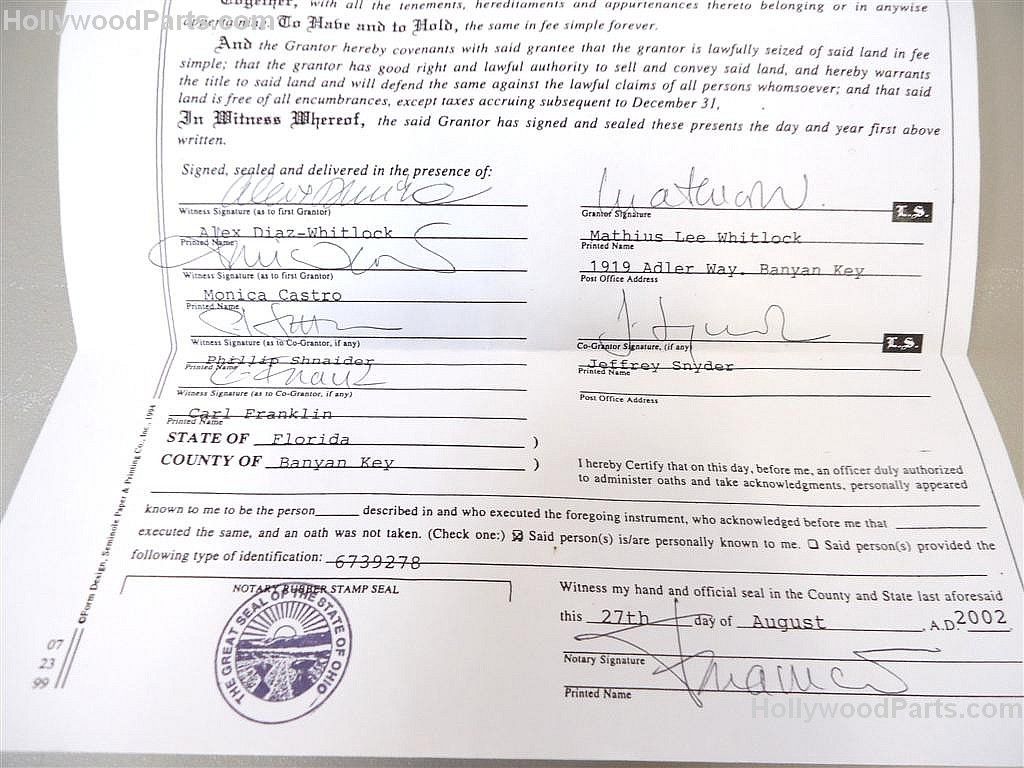 HollywoodParts.com
Together, with all the tenements, hereditaments and appurtenances thereto belonging or in anywise
appertaining. To Have and to Hold, the same in fee simple forever.
And the Grantor hereby covenants with said grantee that the grantor is lawfully seized of said land in fee
simple; that the grantor has good right and lawful authority to sell and convey said land, and hereby warrants
the title to said land and will defend the same against the lawful claims of all persons whomsoever; and that said
land is free of all encumbrances, except taxes accruing subsequent to December 31,
In Witness Whereof, the said Grantor has signed and sealed these presents the day and year first above
written.
Signed, sealed and delivered in the presence of:
Witness Signature (as to first Grantor)
Alex Diaz-Whitlock
Printed Name
Witness Signature (as to first Grantor)
Monica Castro
Printed Name
Witness Signature (as to Co-Grantor, if any)
Phillip Shnaider
Printed Name
Witness Signature (as to Co-Grantor, if any)
Carl Franklin
Printed Name
Grantor Signature
L.S.
Mathius Lee Whitlock
Printed Name
1919 Adler Way. Banyan Key
Post Office Address
Co-Grantor Signature, (if any)
L.S.
Jeffrey Snyder
Printed Name
Post Office Address
STATE OF Florida )
COUNTY OF Banyan Key )
I hereby Certify that on this day, before me, an officer duly authorized
to administer oaths and take acknowledgments, personally appeared
known to me to be the person described in and who executed the foregoing instrument, who acknowledged before me that
executed the same, and an oath was not taken. (Check one:) ☒ Said person(s) is/are personally known to me. ☐ Said person(s) provided the
following type of identification: 6739278
NOTARY RUBBER STAMP SEAL
THE GREAT SEAL OF THE STATE OF OHIO
Witness my hand and official seal in the County and State last aforesaid
this 27th day of August, A.D. 2002
Notary Signature
Printed Name
©Form Design, Seminole Paper & Printing Co., Inc., 1994
07
23
99
HollywoodParts.com